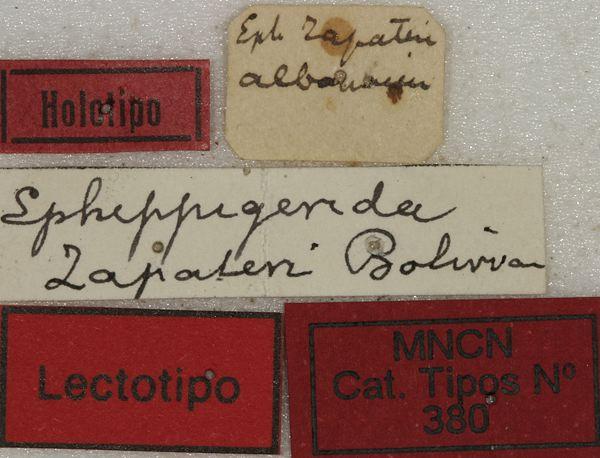 Eph Zapateri
Holotipo
Ephippigerida
Zapateri Bolivar
Lectotipo
MNCN
Cat. Tipos Nº
380